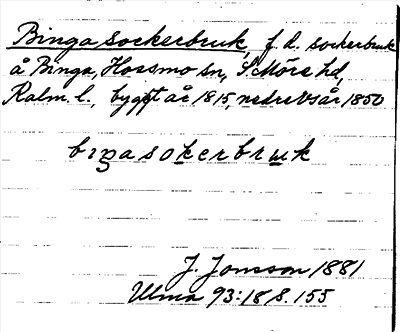 Binga sockerbruk, f.d. sockerbruk
å Binga, Hossmo sn, S. Möre hd,
Kalm. l., byggt år 1815, nedrevs år 1850
bıŋasokerbruk
J. Jonsson 1881
Ulma 93:18 s. 155